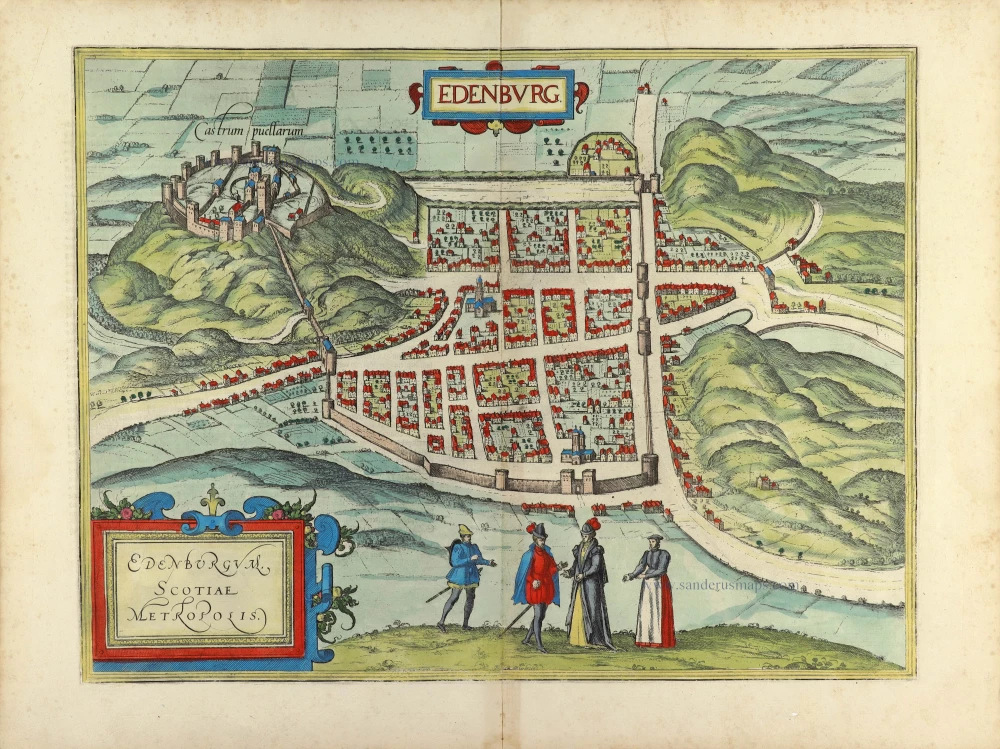 EDENBVRG.
Castrum puellarum
EDENBVRGVM,
SCOTIAE
METROPOLIS.
www.sanderusmaps.com